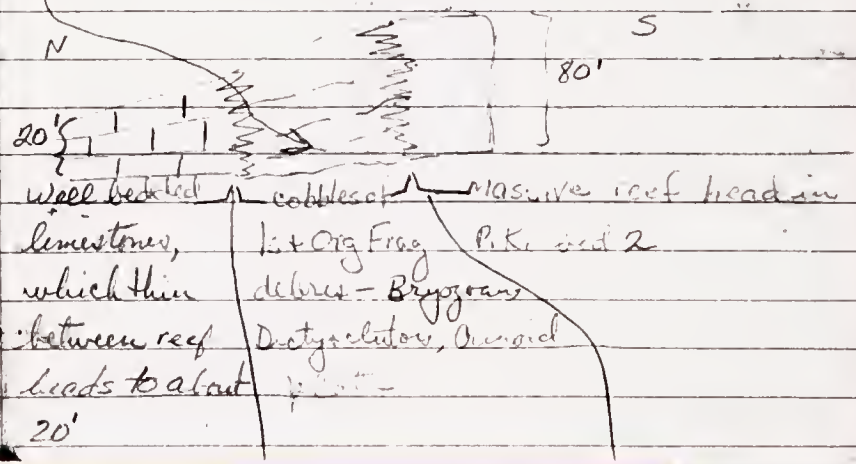 N
S
80'
20'
Well bedded
limestones,
which thin
between reef
heads to about
20'
cobbles of
ls + Org Frag
debris - Bryozoans
Crinoid
Massive reef head in
bed 2